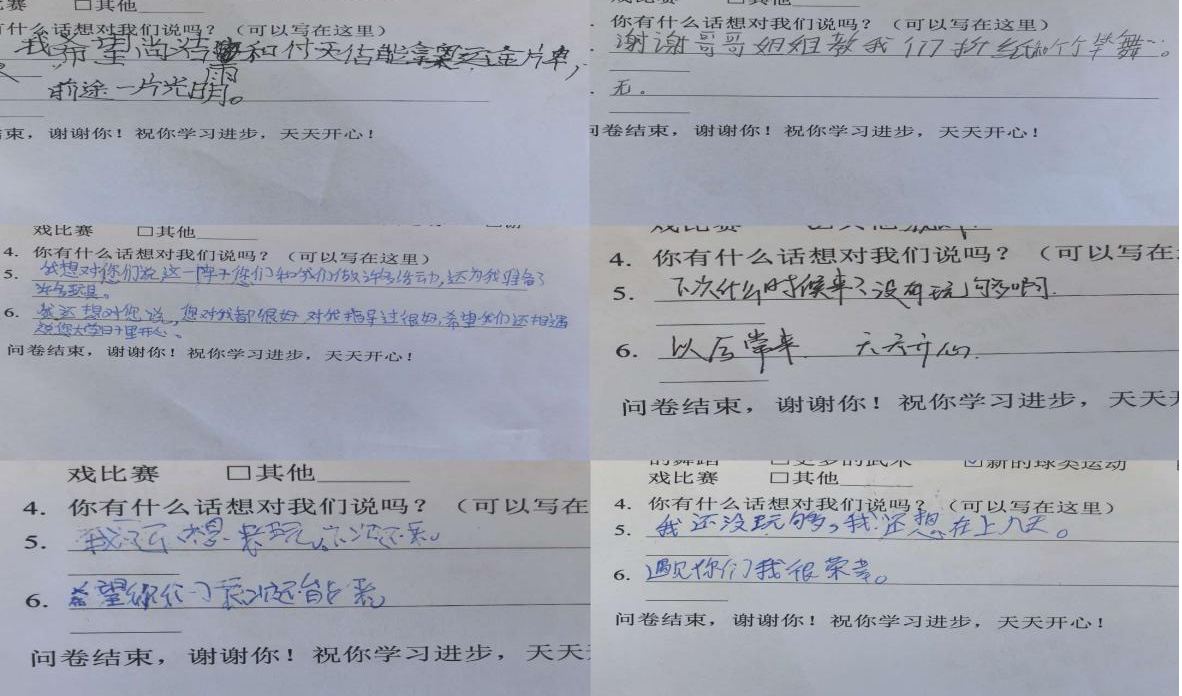 赛 □其他
什么话想对我们说吗？（可以写在这里）
我希望尚洁和付天佑能拿奥运金片牟，
雨
前途一片光明。
束，谢谢你！祝你学习进步，天天开心！
你有什么话想对我们说吗？（可以写在这里）
谢谢哥哥姐姐教我们折纸和竹竿舞。
无。
问卷结束，谢谢你！祝你学习进步，天天开心！
戏比赛 □其他
4. 你有什么话想对我们说吗？（可以写在这里）
5. 我想对您们说这一阵子您们和我们做许多活动,还为我准备了
许多玩具。
6. 我还想对您说,您对我都很好 对我指导过很好,希望我们还相遇
祝您大学日子里开心。
问卷结束，谢谢你！祝你学习进步，天天开心！
4. 你有什么话想对我们说吗？（可以写在
5. 下次什么时候来？没有玩够啊.
6. 以后常来. 天天开心.
问卷结束，谢谢你！祝你学习进步，天天
戏比赛 □其他
4. 你有什么话想对我们说吗？（可以写在
5. 我还想来玩。下次还来。
6. 希望你们还能来。
问卷结束，谢谢你！祝你学习进步，天天
☑新的球类运动
戏比赛 □其他
4. 你有什么话想对我们说吗？（可以写在这里）
5. 我还没玩够，我还想在上九天。
6. 遇见你们我很荣幸。
问卷结束，谢谢你！祝你学习进步，天天开心！